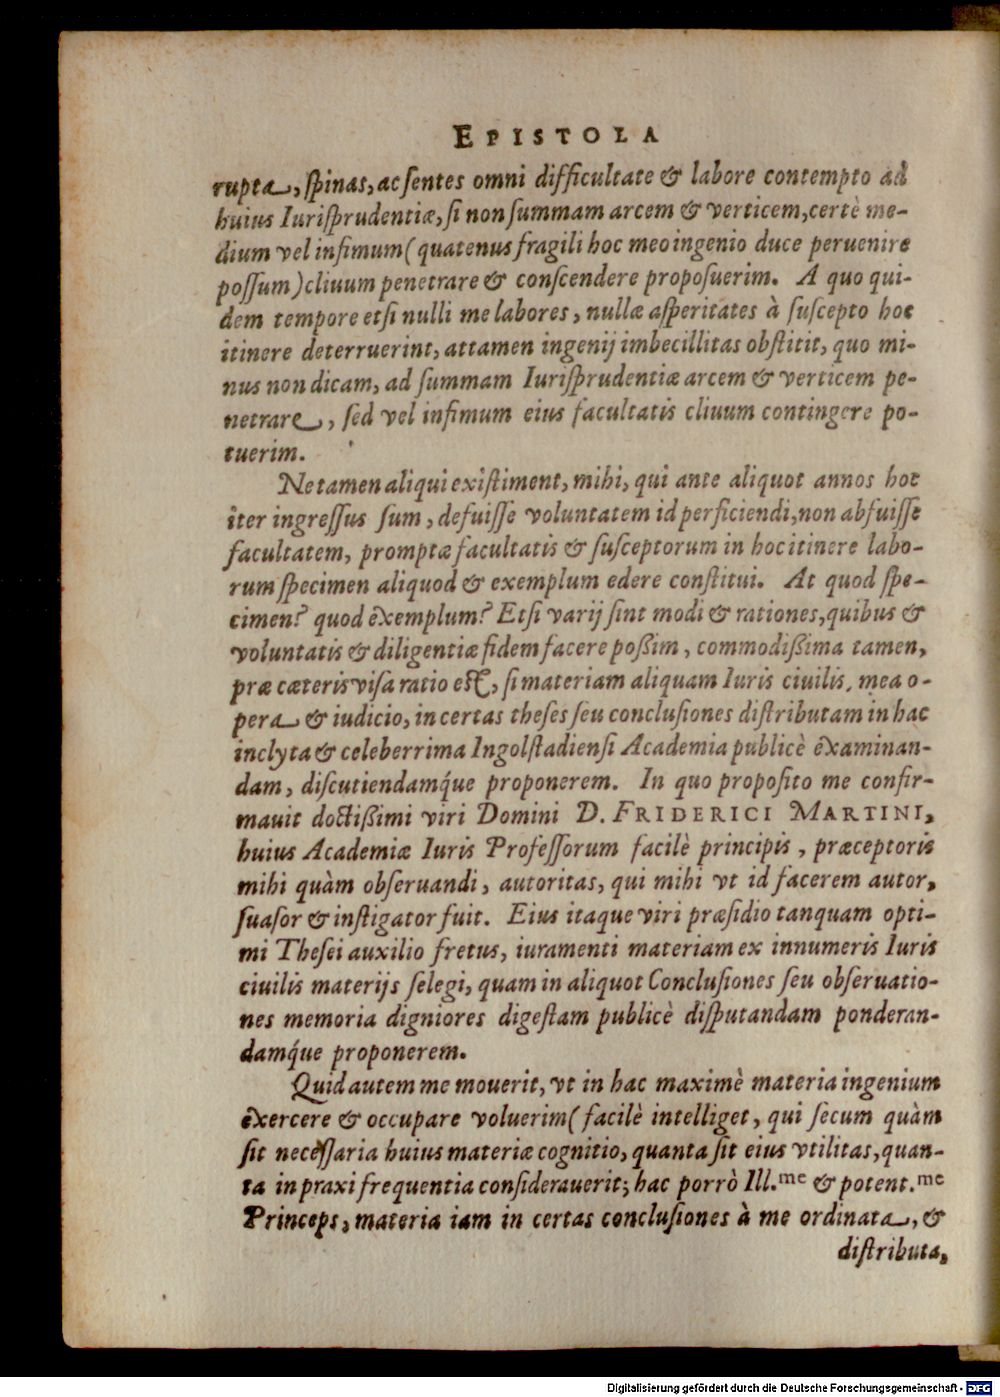 EPISTOLA
rupta, ſpinas, ac ſentes omni difficultate & labore contempto ad
huius Iuriſprudentiæ, ſi non ſummam arcem & verticem, certè me-
dium vel infimum (quatenus fragili hoc meo ingenio duce peruenire
poſſum) cliuum penetrare & conſcendere propoſuerim. A quo qui-
dem tempore etſi nulli me labores, nullæ aſperitates à ſuſcepto hoc
itinere deterruerint, attamen ingenij imbecillitas obſtitit, quo mi-
nus non dicam, ad ſummam Iuriſprudentiæ arcem & verticem pe-
netrare, ſed vel infimum eius facultatis cliuum contingere po-
tuerim.
Ne tamen aliqui exiſtiment, mihi, qui ante aliquot annos hoc
iter ingreſſus ſum, defuiſſe voluntatem id perficiendi, non abfuiſſe
facultatem, promptæ facultatis & ſuſceptorum in hoc itinere labo-
rum ſpecimen aliquod & exemplum edere conſtitui. At quod ſpe-
cimen? quod exemplum? Etſi varij ſint modi & rationes, quibus &
voluntatis & diligentiæ fidem facere poßim, commodißima tamen,
præ cæteris viſa ratio eſt, ſi materiam aliquam Iuris ciuilis, mea o-
pera & iudicio, in certas theſes ſeu concluſiones diſtributam in hac
inclyta & celeberrima Ingolſtadienſi Academia publicè examinan-
dam, diſcutiendamq́ue proponerem. In quo propoſito me confir-
mauit doctißimi viri Domini D. FRIDERICI MARTINI,
huius Academiæ Iuris Profeſſorum facilè principis, præceptoris
mihi quàm obſeruandi, autoritas, qui mihi vt id facerem autor,
ſuaſor & inſtigator fuit. Eius itaque viri præſidio tanquam opti-
mi Theſei auxilio fretus, iuramenti materiam ex innumeris Iuris
ciuilis materijs ſelegi, quam in aliquot Concluſiones ſeu obſeruatio-
nes memoria digniores digeſtam publicè diſputandam ponderan-
damq́ue proponerem.
Quid autem me mouerit, vt in hac maximè materia ingenium
exercere & occupare voluerim (facilè intelliget, qui ſecum quàm
ſit neceſſaria huius materiæ cognitio, quanta ſit eius vtilitas, quan-
ta in praxi frequentia conſiderauerit; hac porrò Ill.me & potent.me
Princeps, materia iam in certas concluſiones à me ordinata, &
diſtributa,
Digitalisierung gefördert durch die Deutsche Forschungsgemeinschaft - DFG